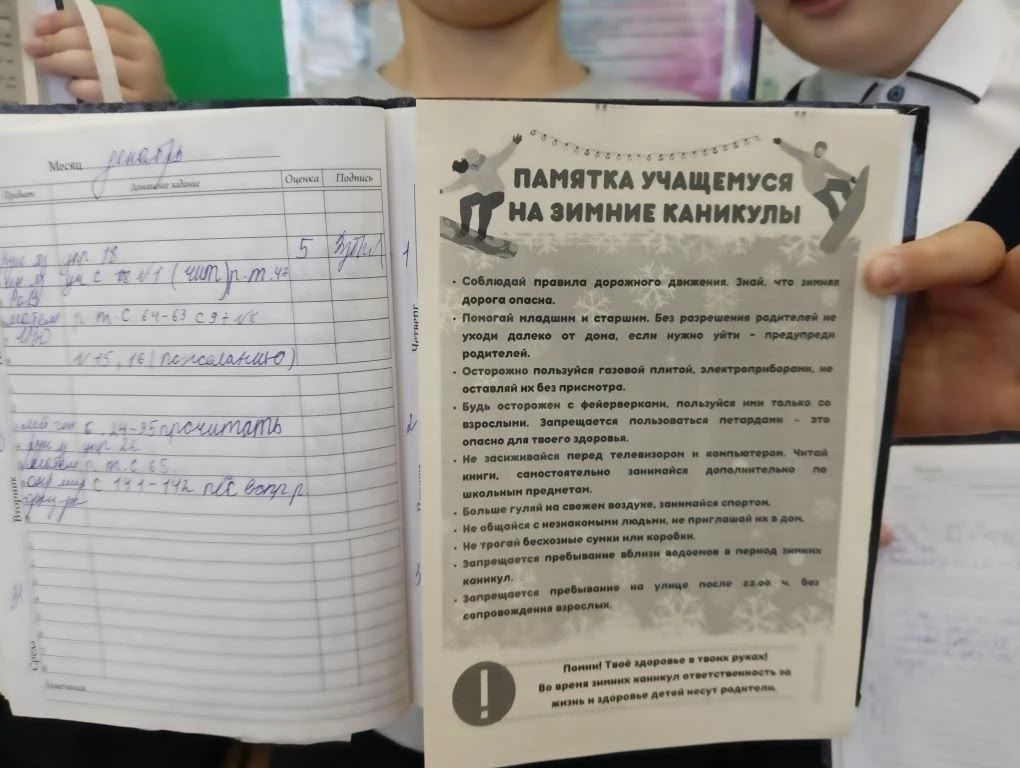 Месяц декабрь
Предмет Домашнее задание Оценка Подпись
упр 18 5
с №1 (чит) р.т. 47
матем р.т. С 64-63 С 97 №8
ИЗО
№15, 16 (по желанию)
с. 24-35 прочитать
упр 21
р.т. С 65
окр мир С 141-142 вопр р.
Вторник
Среда
Замечания
1
Четверг
2
3
ПАМЯТКА УЧАЩЕМУСЯ
НА ЗИМНИЕ КАНИКУЛЫ
• Соблюдай правила дорожного движения. Знай, что зимняя
дорога опасна.
• Помогай младшим и старшим. Без разрешения родителей не
уходи далеко от дома, если нужно уйти - предупреди
родителей.
• Осторожно пользуйся газовой плитой, электроприборами, не
оставляй их без присмотра.
• Будь осторожен с фейерверками, пользуйся ими только со
взрослыми. Запрещается пользоваться петардами - это
опасно для твоего здоровья.
• Не засиживайся перед телевизором и компьютером. Читай
книги, самостоятельно занимайся дополнительно по
школьным предметам.
• Больше гуляй на свежем воздухе, занимайся спортом.
• Не общайся с незнакомыми людьми, не приглашай их в дом.
• Не трогай бесхозные сумки или коробки.
• Запрещается пребывание вблизи водоемов в период зимних
каникул.
• Запрещается пребывание на улице после 22.00 ч. без
сопровождения взрослых.
Помни! Твоё здоровье в твоих руках!
Во время зимних каникул ответственность за
жизнь и здоровье детей несут родители.